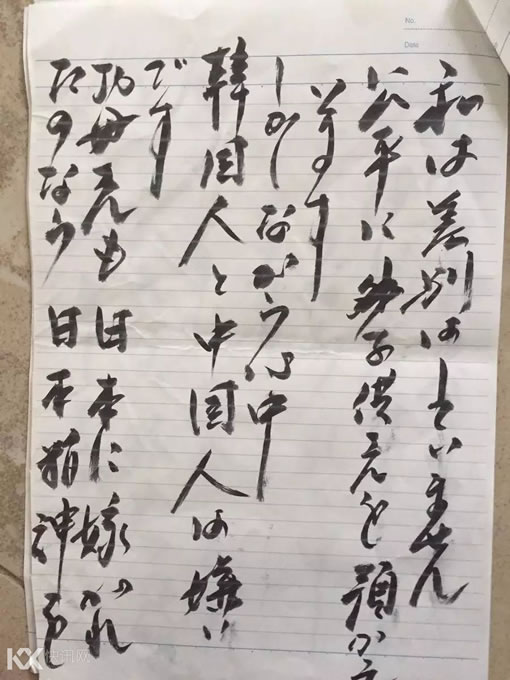 No.
Date
私は差別はしていません
公平にお子供さんを預かって
います
しかしながら心中
韓国人と中国人は嫌い
です
お母さんも日本に嫁がれ
たのなら日本精神も
KX 快讯网